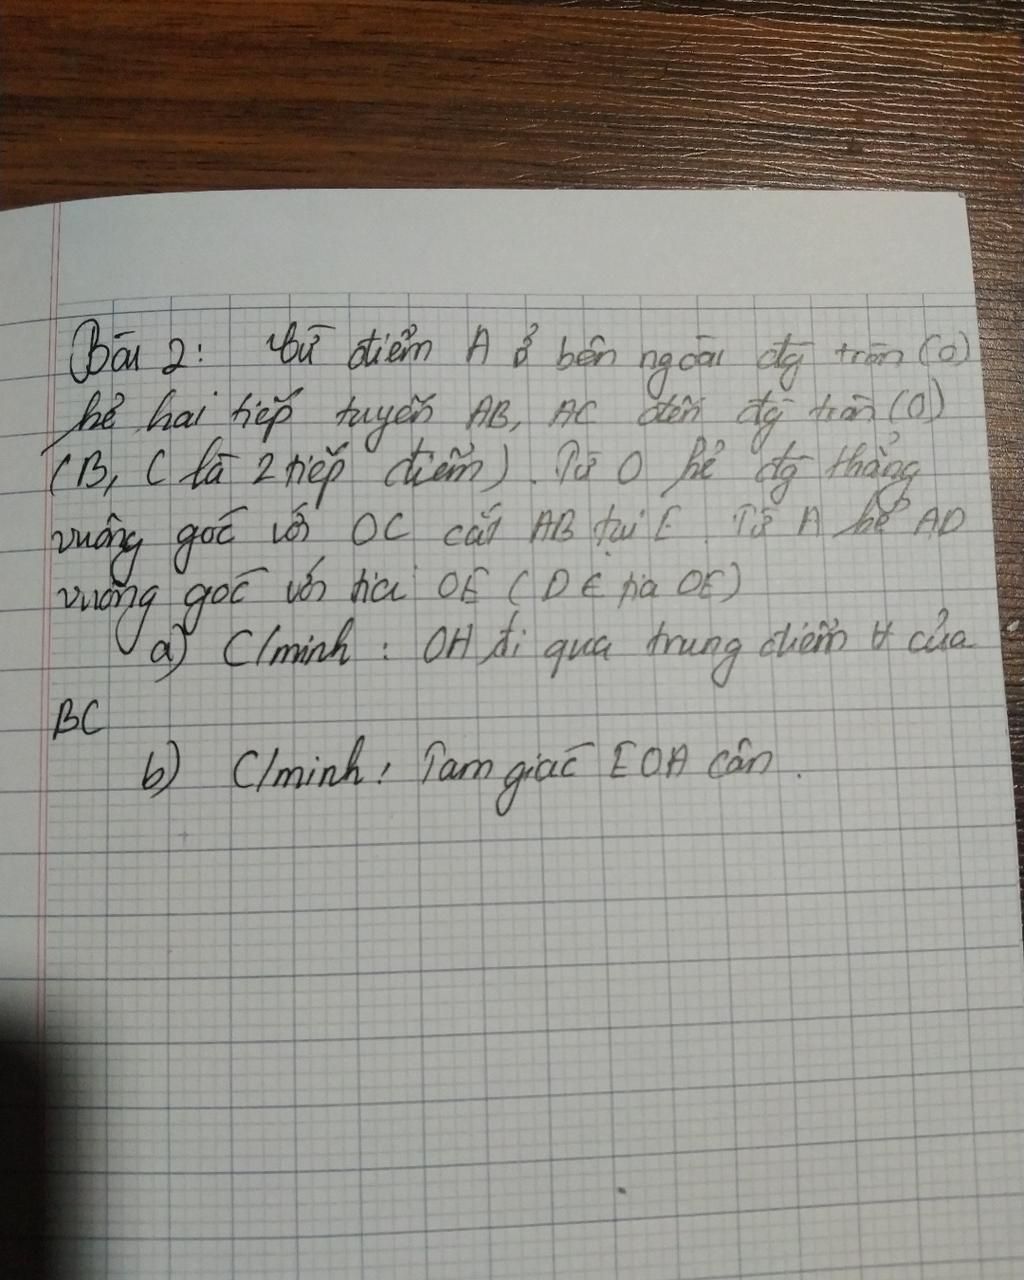 Bài 2: Từ điểm A ở bên ngoài đg tròn (O)
kẻ hai tiếp tuyến AB, AC đến đg tròn (O)
(B, C là 2 tiếp điểm). Từ O kẻ đg thẳng
vuông góc với OC cắt AB tại E. Từ A kẻ AD
vuông góc với tia OE (D ∈ tia OE)
a) C/minh : OA đi qua trung điểm H của
BC
b) C/minh : Tam giác EOA cân.